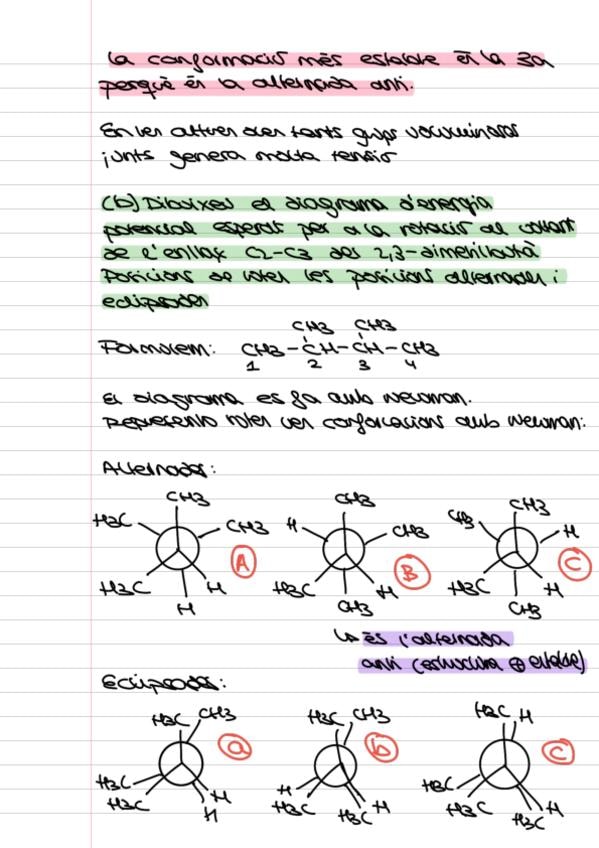 La conformació més estable és la 3a
perquè és la alternada anti.
En les altres tants grups voluminosos
junts genera molta tensió
(b) Dibuixeu el diagrama d'energia
potencial esperat per a la rotació al voltant
de l'enllaç C2-C3 del 2,3-dimetilbutà
Posicions de totes les posicions alternades i
eclipsades
Formulem:
CH3 CH3
CH3-CH-CH-CH3
1 2 3 4
El diagrama es fa amb Newman.
Represento totes les conformacions amb Newman:
Alternades:
CH3 CH3 CH3
H3C CH3 H CH3 CH3 H
A B C
H3C H H3C H H3C H
H CH3 CH3
↳ és l'alternada
anti (estructura ⊕ estable)
Eclipsades:
H3C CH3 H3C CH3 H3C H
a b c
H3C H H3C
H3C H H3C H H3C H
H H3C H3C